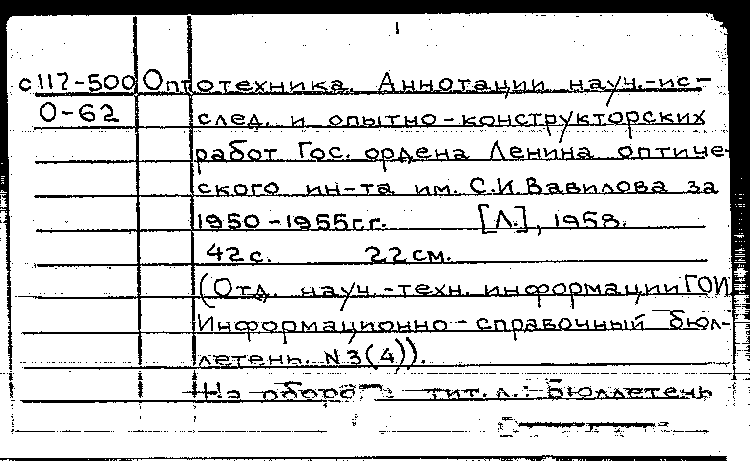 с117-500 Оптотехника. Аннотации науч.-ис-
О-62 след. и опытно-конструкторских
работ Гос. ордена Ленина оптиче-
ского ин-та им. С.И. Вавилова за
1950-1955гг. [Л.], 1958.
42с. 22см.
(Отд. науч.-техн. информации ГОИ
Информационно-справочный бюл-
летень. N3(4)).
На обороте тит. л.: Бюллетень